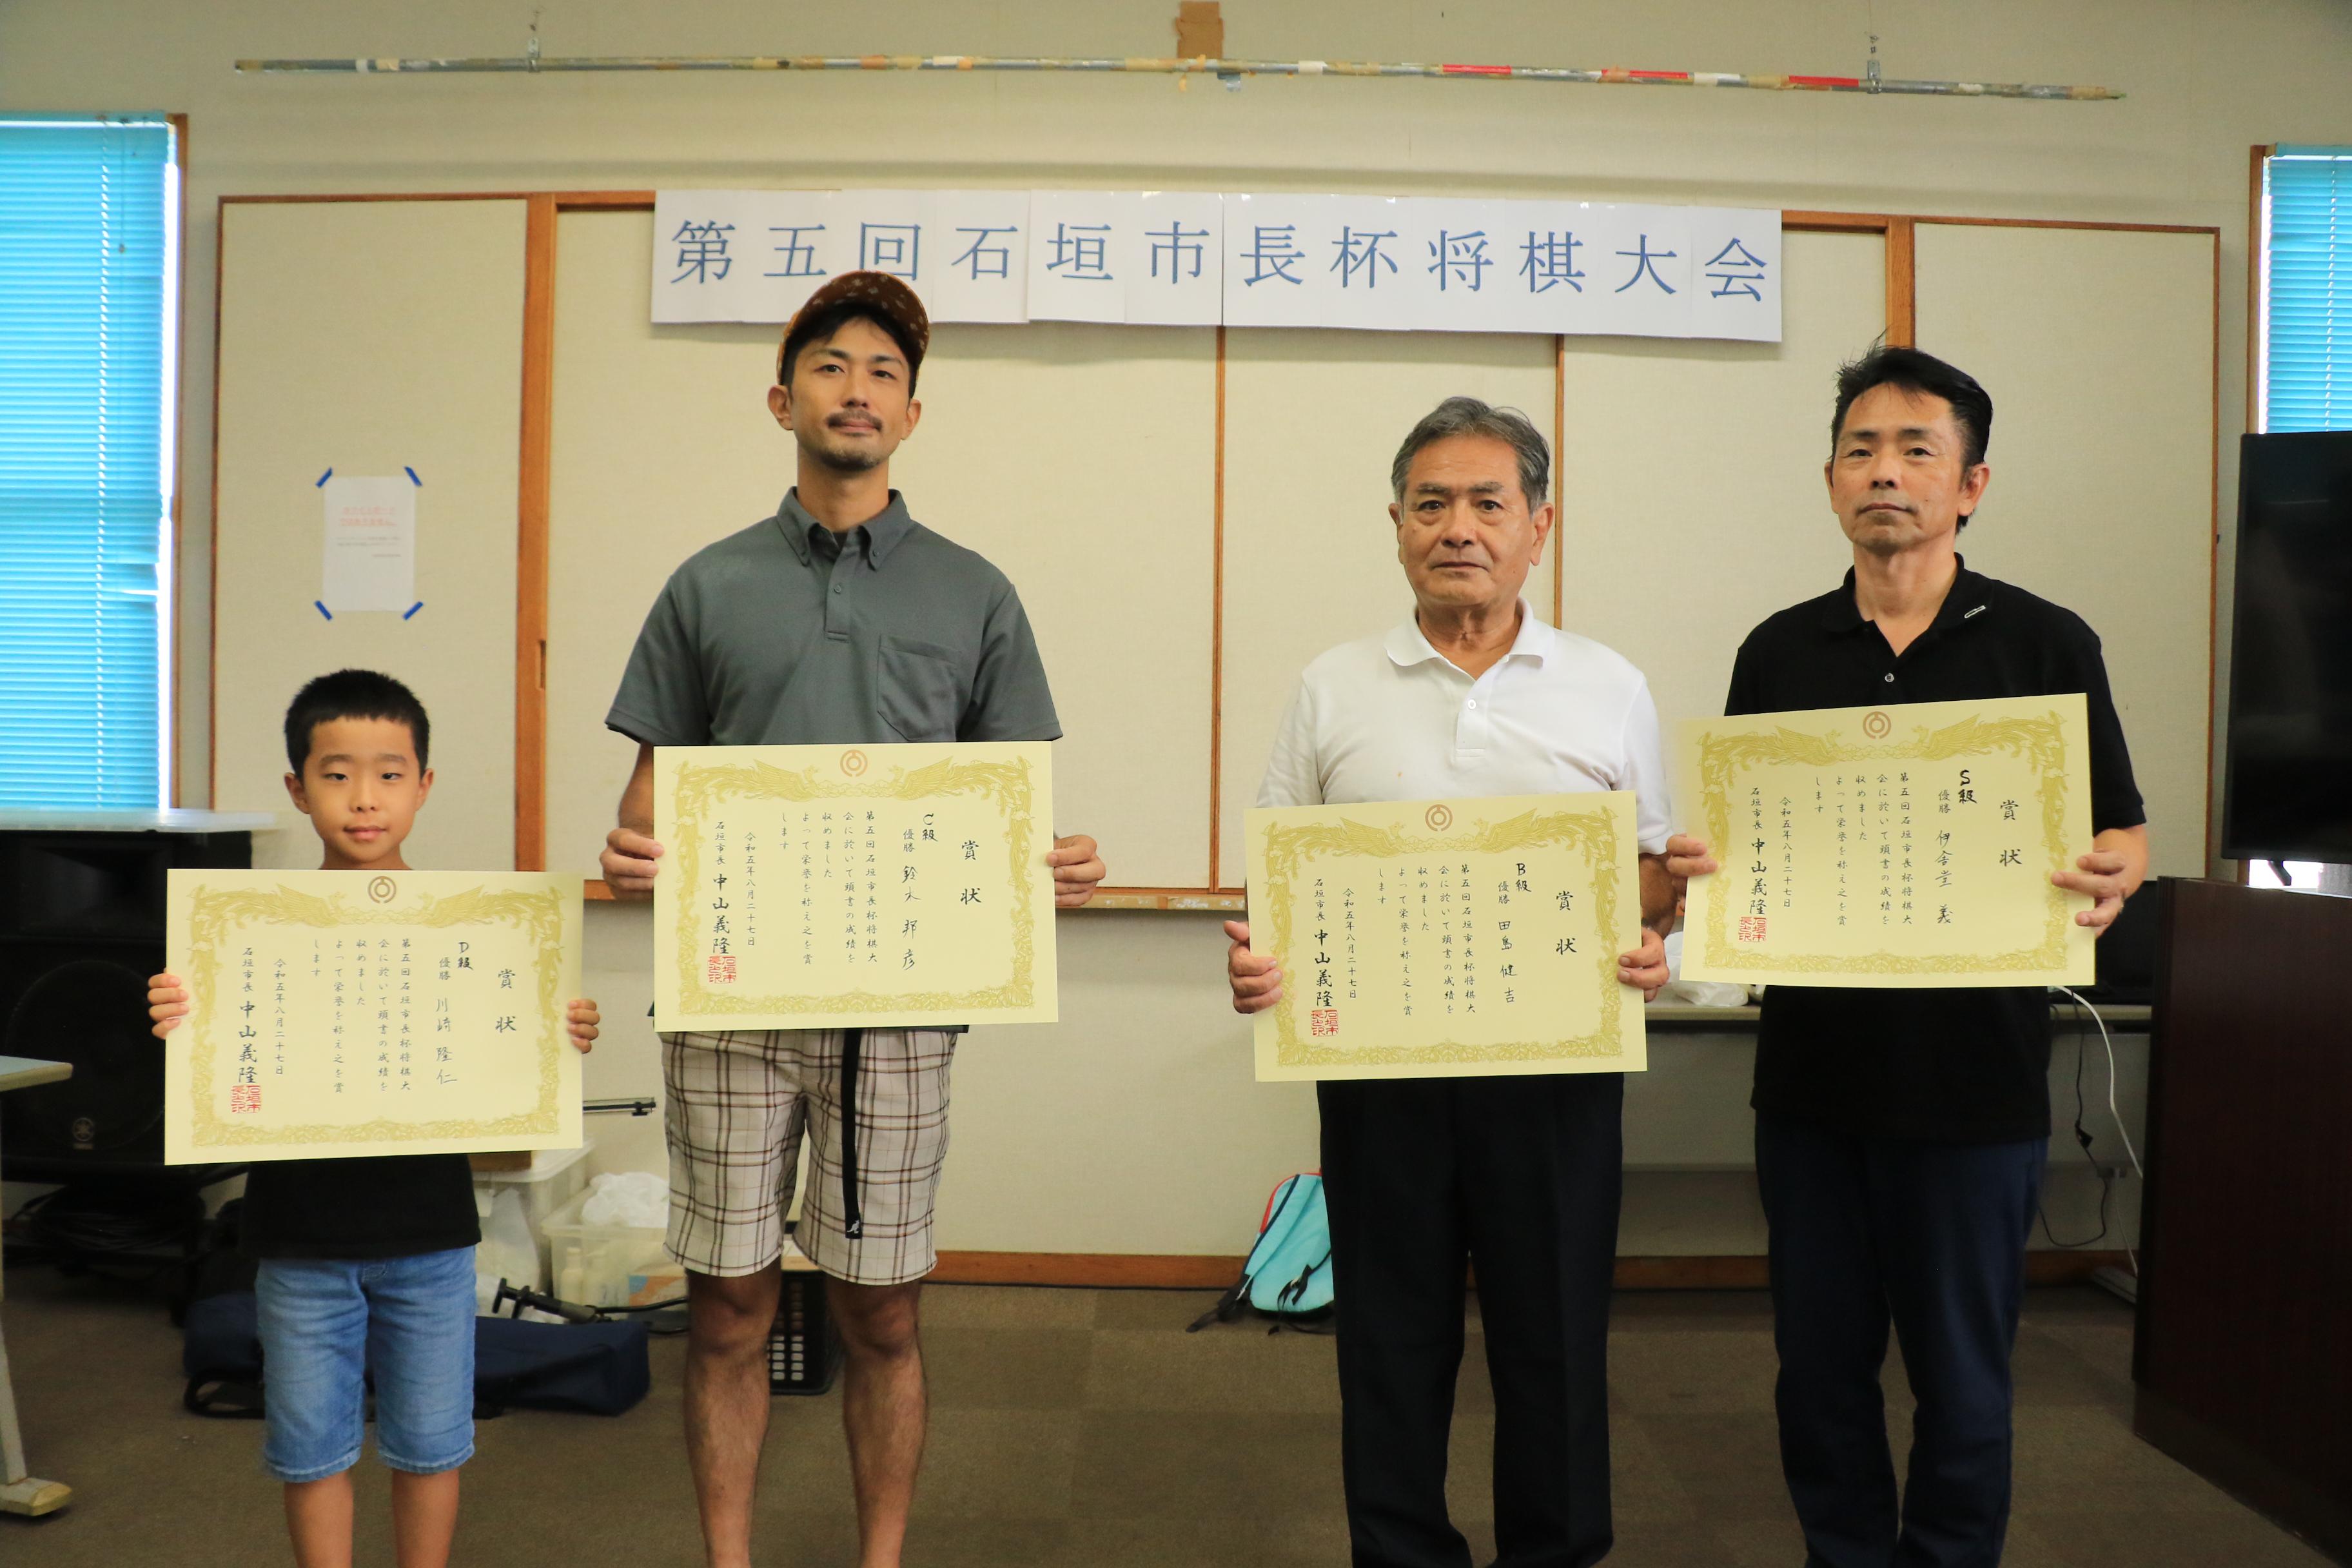 第五回石垣市長杯将棋大会
賞状
D級
優勝 川崎 隆仁
第五回石垣市長杯将棋大
会に於いて頭書の成績を
収めました
よって栄誉を称え之を賞
します
令和五年八月二十七日
石垣市長 中山義隆
石垣市長之印
賞状
C級
優勝 鈴木 邦彦
第五回石垣市長杯将棋大
会に於いて頭書の成績を
収めました
よって栄誉を称え之を賞
します
令和五年八月二十七日
石垣市長 中山義隆
石垣市長之印
賞状
B級
優勝 田島 健吉
第五回石垣市長杯将棋大
会に於いて頭書の成績を
収めました
よって栄誉を称え之を賞
します
令和五年八月二十七日
石垣市長 中山義隆
石垣市長之印
賞状
S級
優勝 伊舎堂 義
第五回石垣市長杯将棋大
会に於いて頭書の成績を
収めました
よって栄誉を称え之を賞
します
令和五年八月二十七日
石垣市長 中山義隆
石垣市長之印